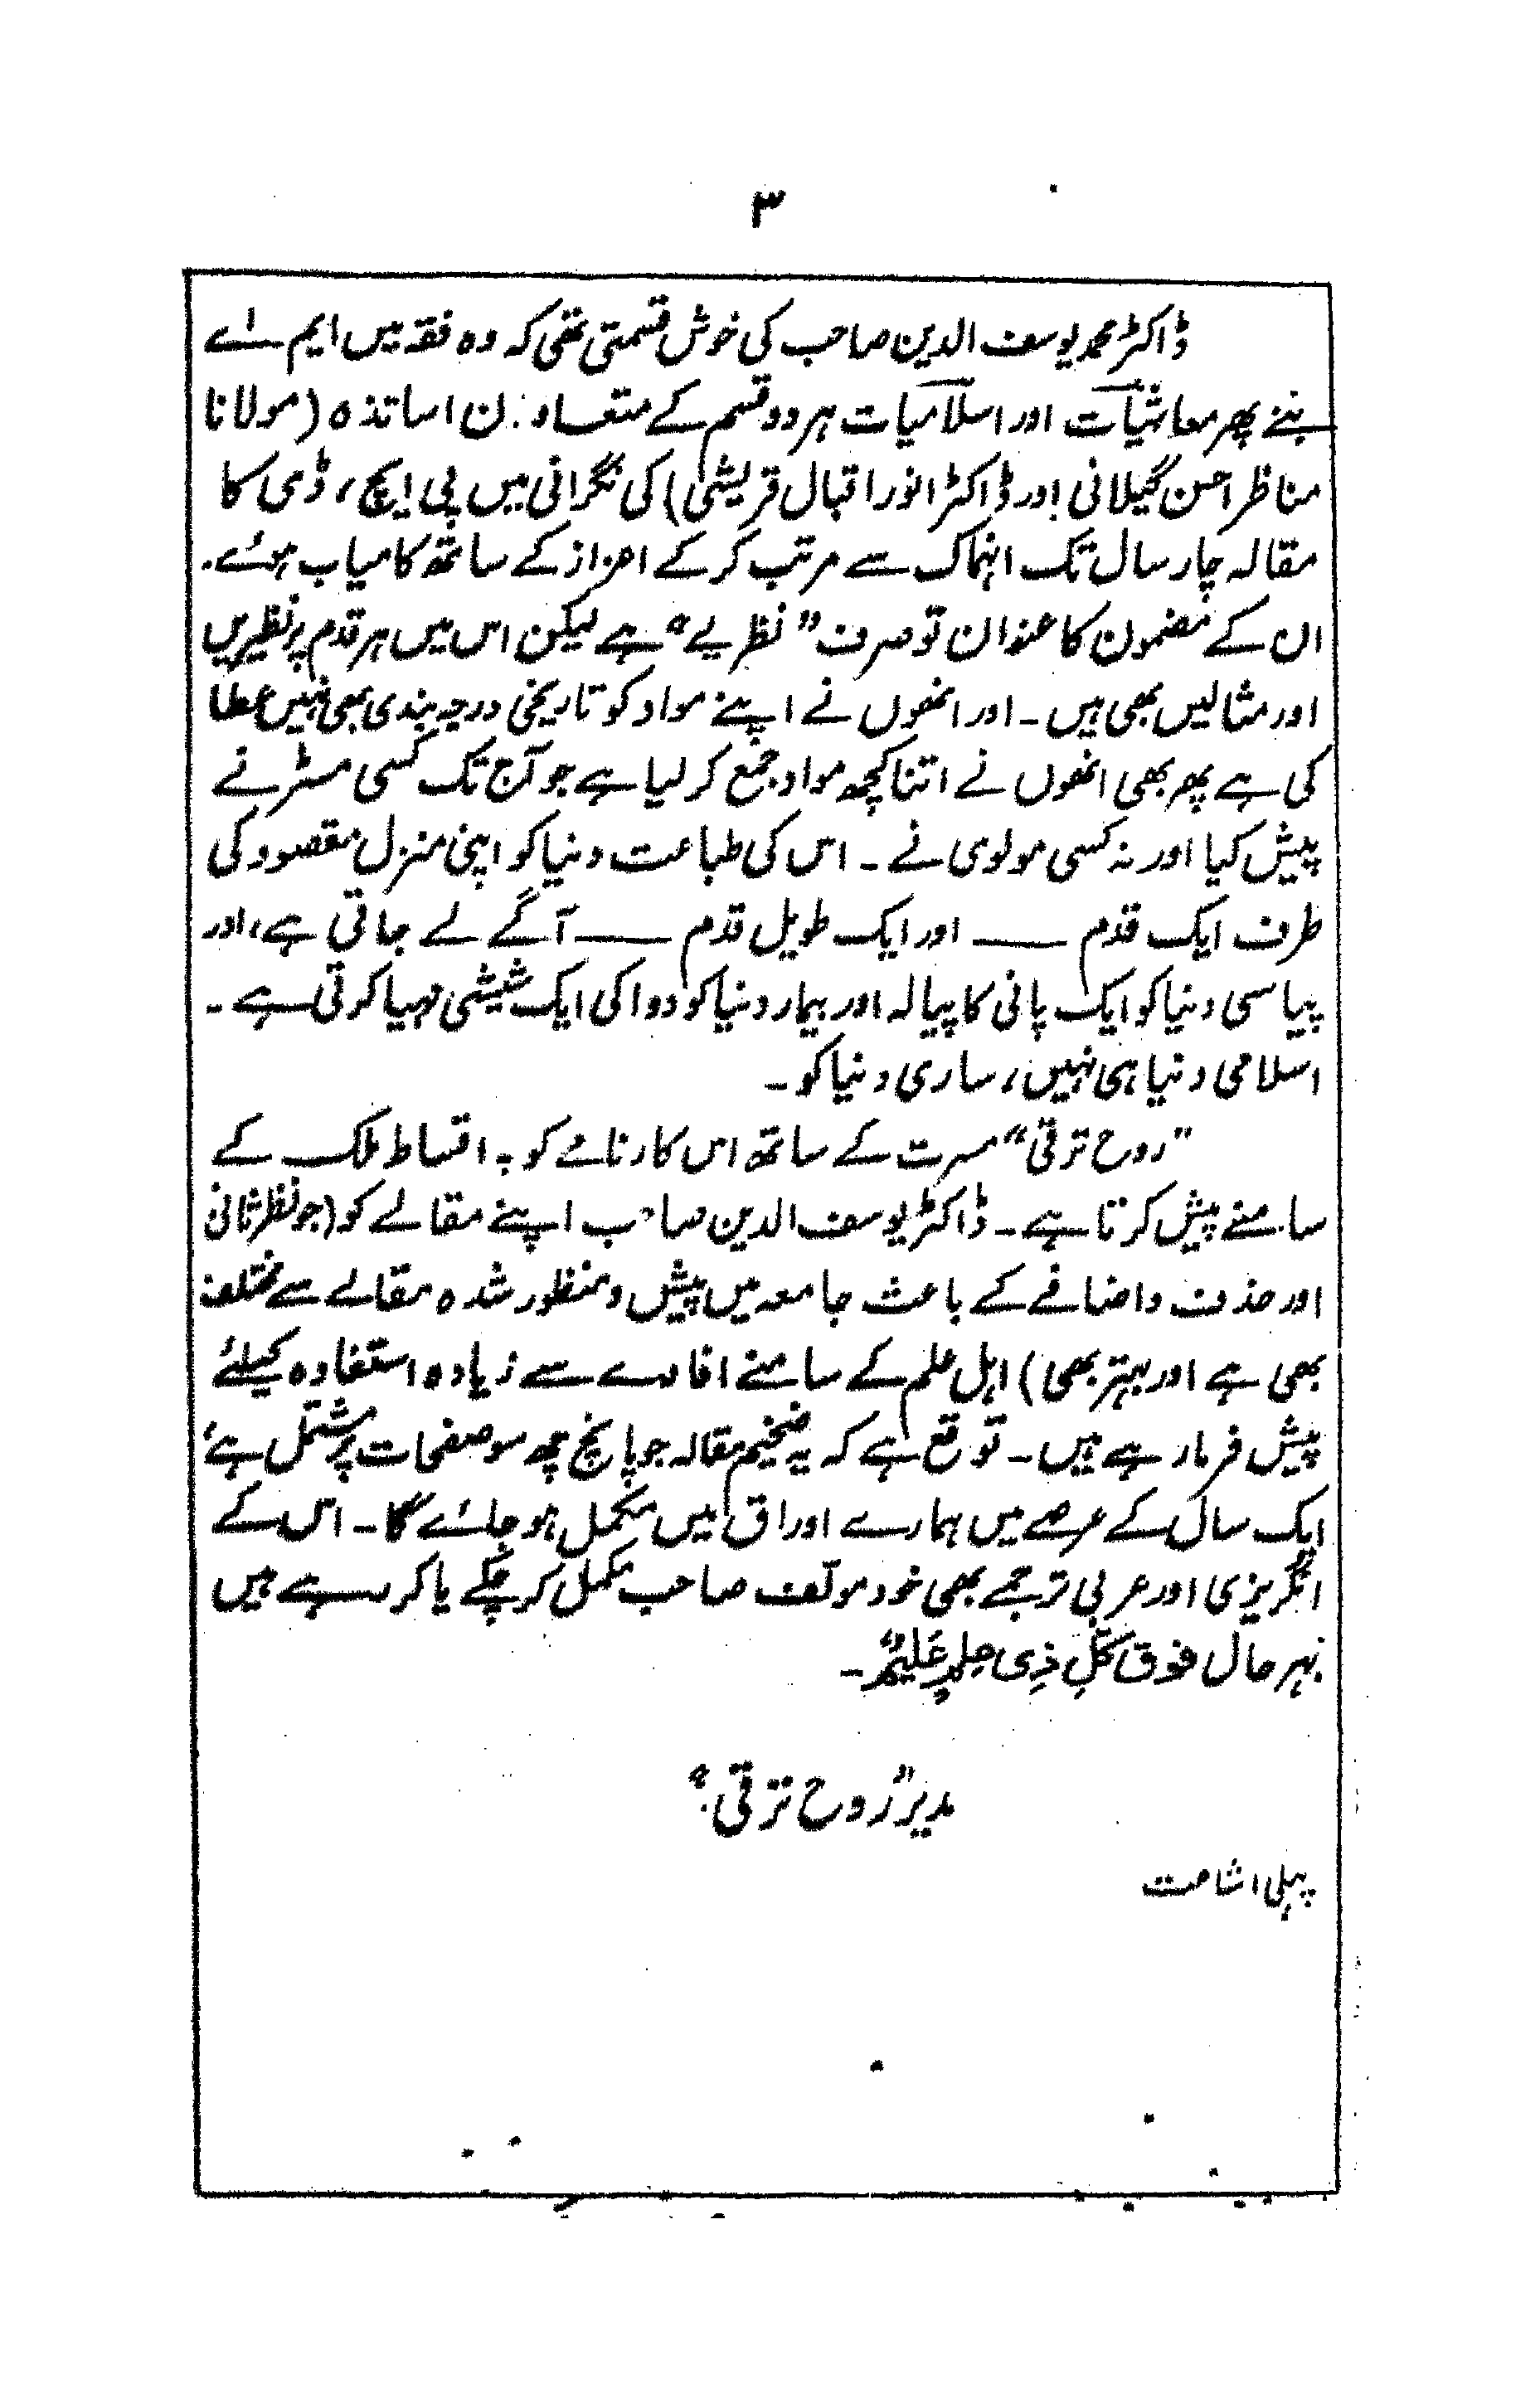 ۳
ڈاکٹر محمد یوسف الدین صاحب کی خوش قسمتی تھی کہ وہ فقہ میں ایم اے
بنے پھر معاشیات اور اسلامیات ہر دو قسم کے متعاون اساتذہ (مولانا
مناظر احسن گیلانی اور ڈاکٹر انور اقبال قریشی) کی نگرانی میں پی ایچ، ڈی کا
مقالہ چار سال تک انہماک سے مرتب کر کے اعزاز کے ساتھ کامیاب ہوئے۔
ان کے مضمون کا عنوان تو صرف ”نظریے“ ہے لیکن اس میں ہر قدم پر نظیریں
اور مثالیں بھی ہیں۔ اور انھوں نے اپنے مواد کو تاریخی درجہ بندی بھی نہیں عطا
کی ہے پھر بھی انھوں نے اتنا کچھ مواد جمع کر لیا ہے جو آج تک کسی مسٹر نے
پیش کیا اور نہ کسی مولوی نے۔ اس کی طباعت دنیا کو اپنی منزل مقصود کی
طرف ایک قدم —— اور ایک طویل قدم —— آگے لے جاتی ہے، اور
پیاسی دنیا کو ایک پانی کا پیالہ اور بیمار دنیا کو دوا کی ایک شیشی مہیا کرتی ہے۔
اسلامی دنیا ہی نہیں، ساری دنیا کو۔
”روح ترقی“ مسرت کے ساتھ اس کارنامے کو بہ اقساط ملک کے
سامنے پیش کرتا ہے۔ ڈاکٹر یوسف الدین صاحب اپنے مقالے کو (جو نظر ثانی
اور حذف و اضافے کے باعث جامعہ میں پیش و منظور شدہ مقالے سے مختلف
بھی ہے اور بہتر بھی) اہل علم کے سامنے افادے سے زیادہ استفادہ کیلئے
پیش فرما رہے ہیں۔ توقع ہے کہ یہ ضخیم مقالہ جو پانچ چھ سو صفحات پر مشتمل ہے
ایک سال کے عرصے میں ہمارے اوراق میں مکمل ہو جائے گا۔ اس کے
انگریزی اور عربی ترجمے بھی خود مولف صاحب مکمل کر چکے یا کر رہے ہیں
بہر حال فوق کُلِّ ذِی عِلمٍ عَلیمٌ۔
مدیر ”روح ترقی“
پہلی اشاعت